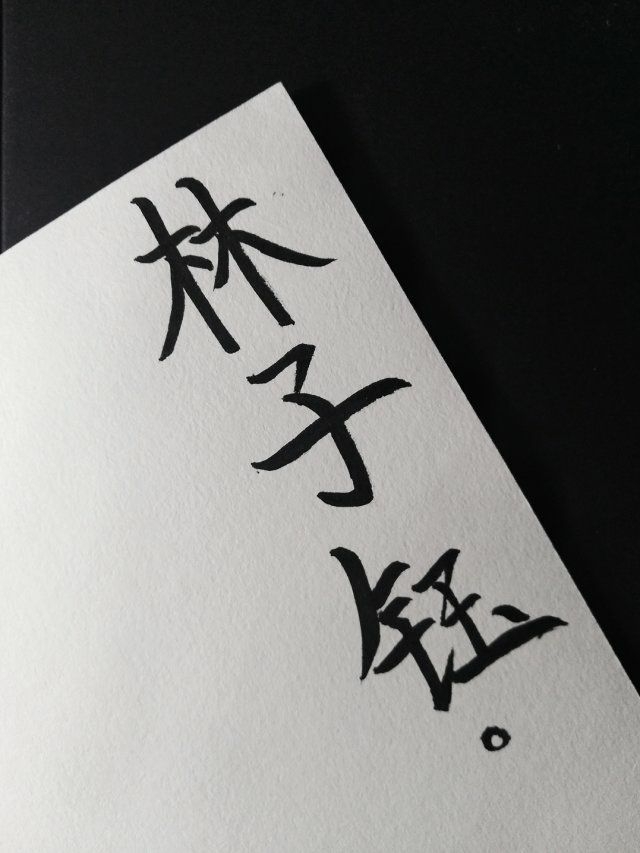 林子钰。